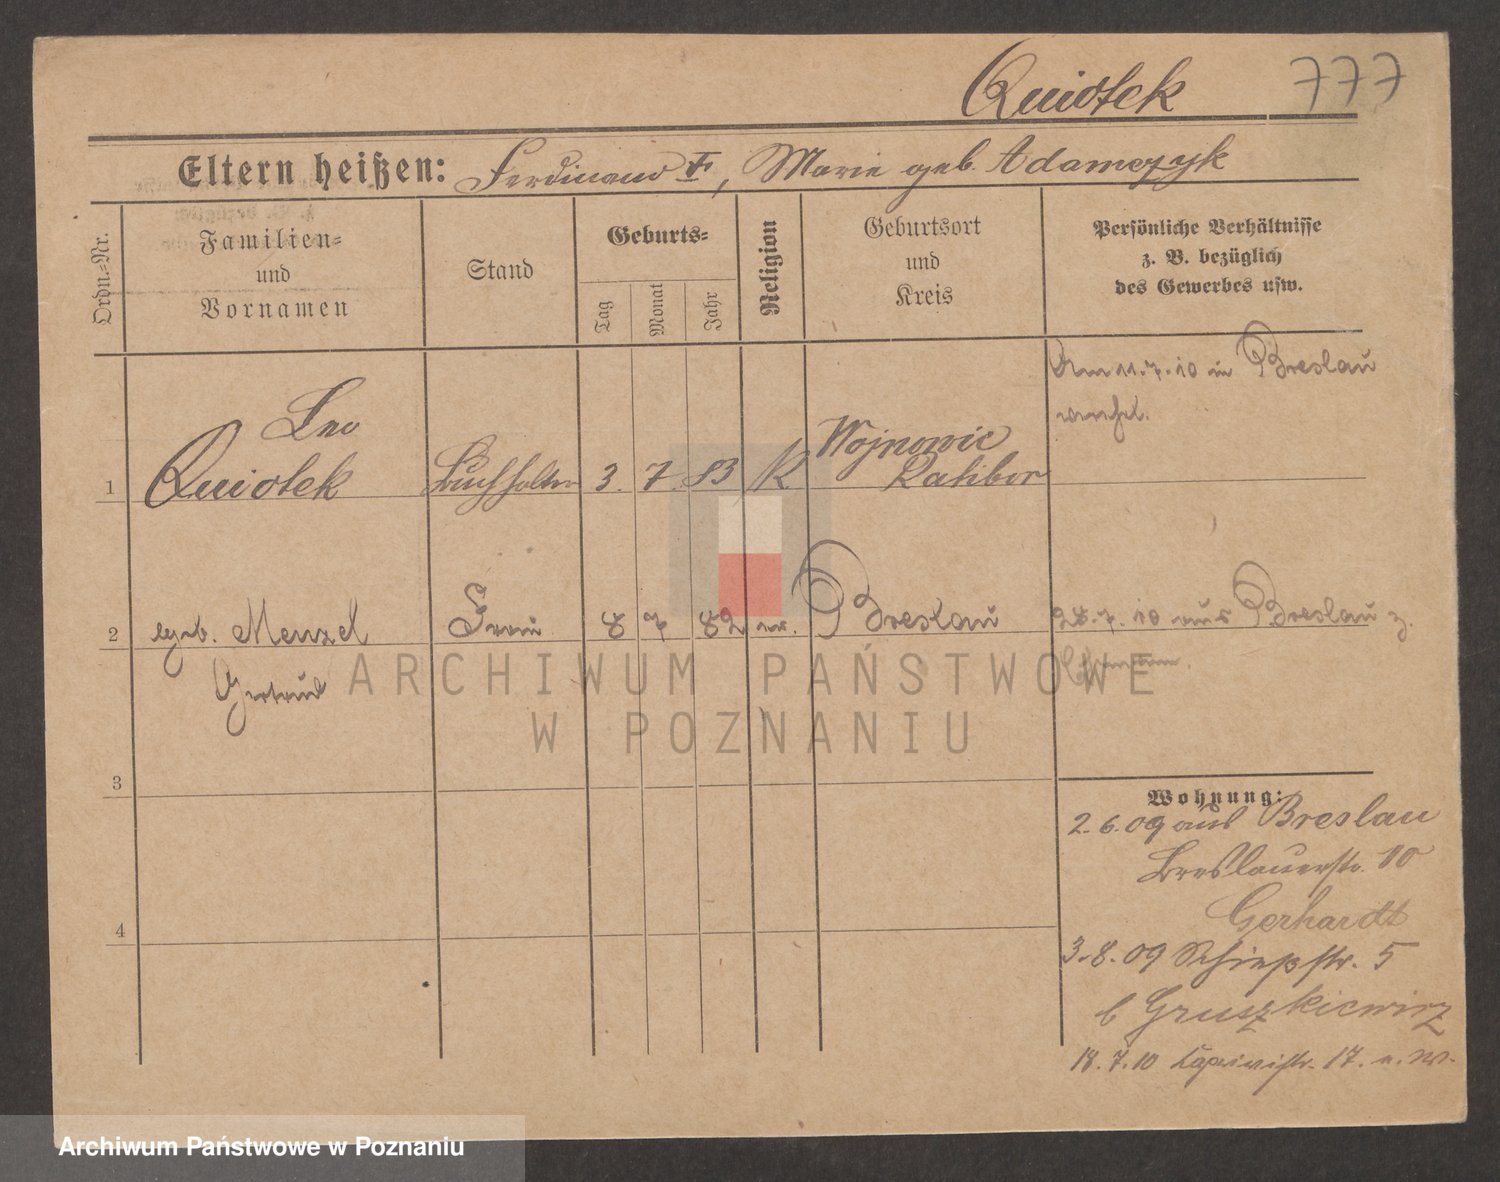 Quiotek 777
Eltern heißen: Ferdinand †, Marie geb. Adamczyk
Ordn.=Nr.
Familien=
und
Vornamen
Stand
Geburts=
Tag
Monat
Jahr
Religion
Geburtsort
und
Kreis
Persönliche Verhältnisse
z. B. bezüglich
des Gewerbes usw.
Am 11.7.10 in Breslau
verehel.
Leo
1 Quiotek Buchhalter 3. 7. 83 K Wojnowic
Ratibor
2 geb. Menzel Frau 8 7 82 ev. Breslau 28.7.10 aus Breslau z.
Gertrud Ehemann.
3
4
Wohnung:
2.6.09 aus Breslau
Breslauerstr. 10
Gerhardt
3.8.09 Schießstr. 5
b Gruszkiewicz
18.7.10 17.
ARCHIWUM PAŃSTWOWE
W POZNANIU
Archiwum Państwowe w Poznaniu